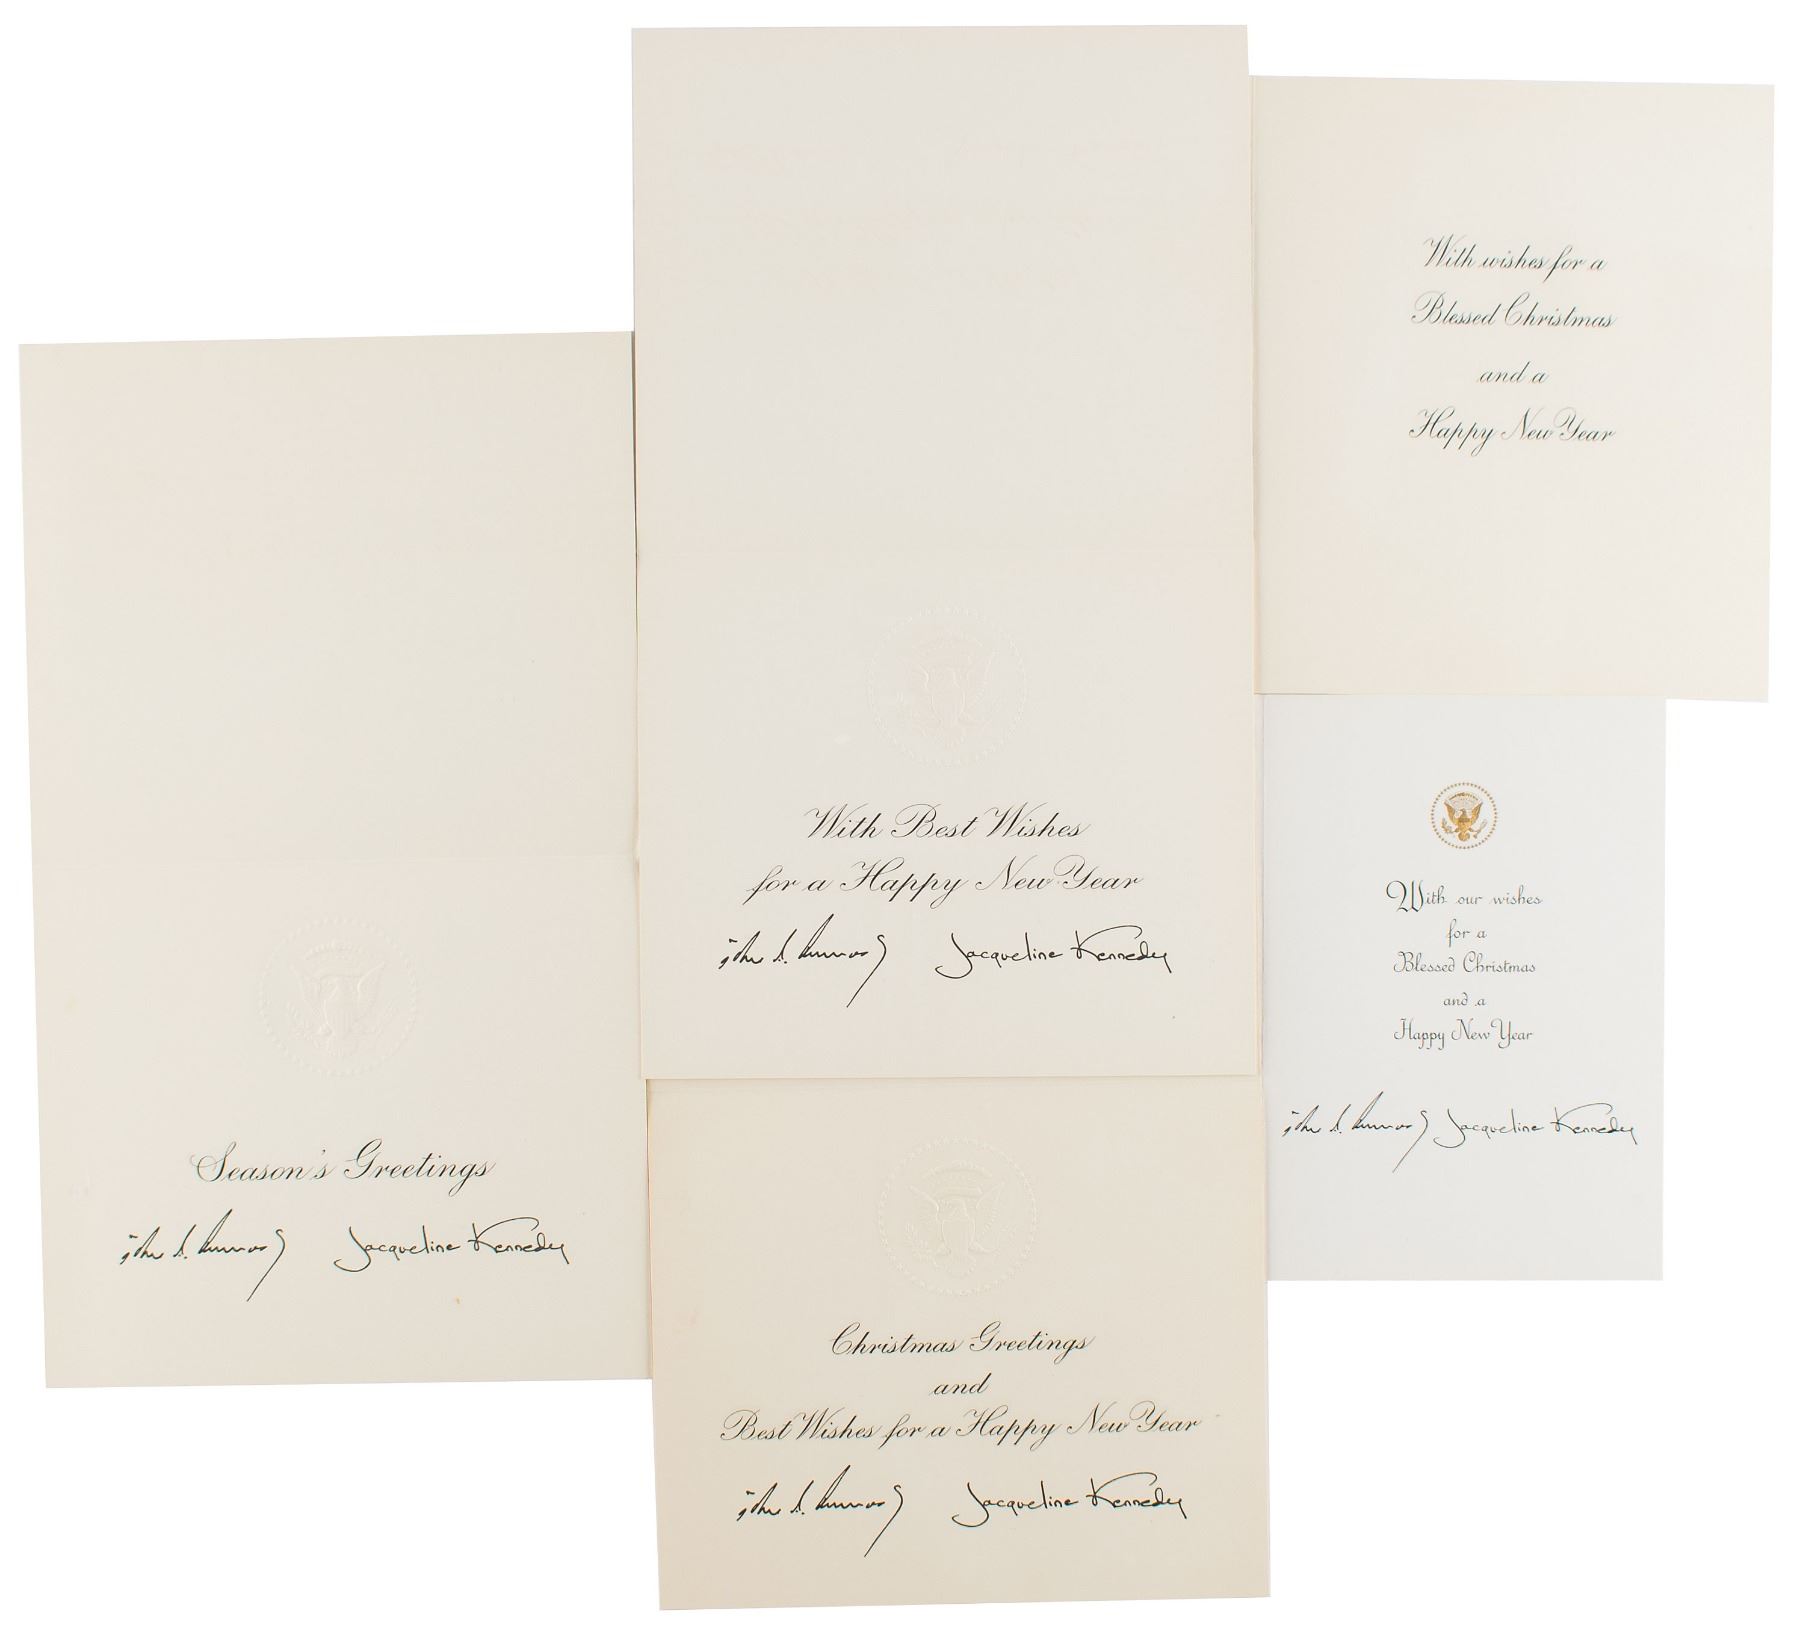 With wishes for a
Blessed Christmas
and a
Happy New Year
With Best Wishes
for a Happy New Year
Jacqueline Kennedy
With our wishes
for a
Blessed Christmas
and a
Happy New Year
Jacqueline Kennedy
Season's Greetings
Jacqueline Kennedy
Christmas Greetings
and
Best Wishes for a Happy New Year
Jacqueline Kennedy